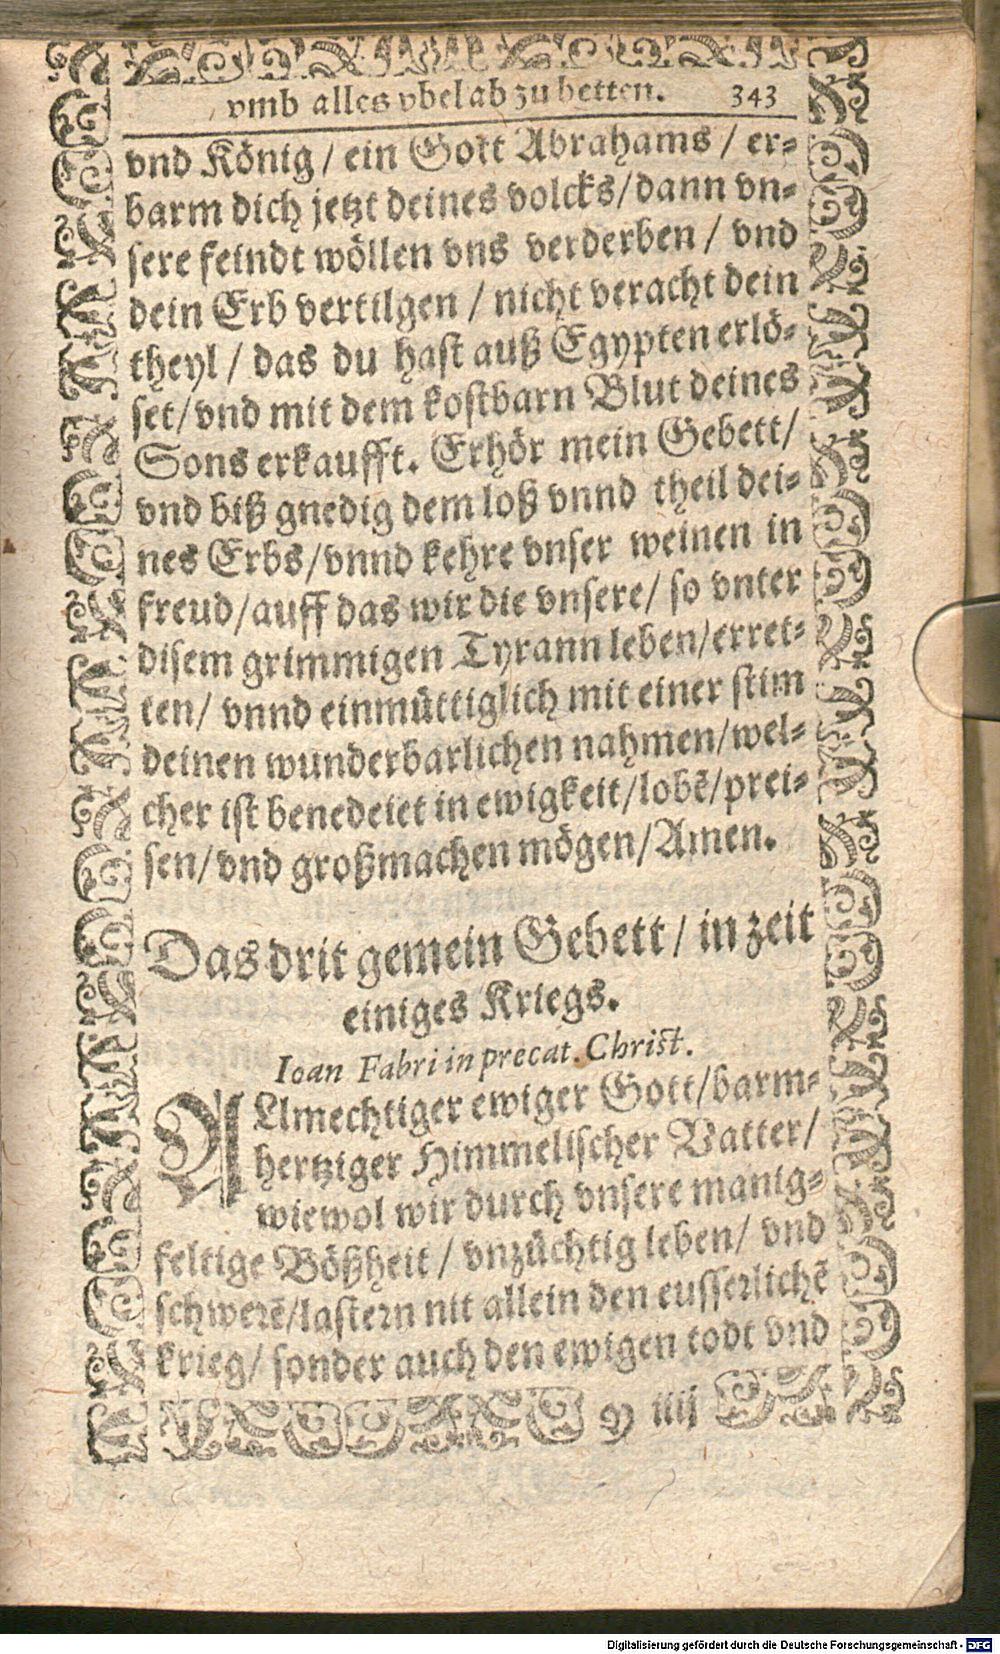 vmb alles vbel ab zu betten. 343
vnd König / ein Gott Abrahams / er-
barm dich jetzt deines volcks/dann vn-
sere feindt wöllen vns verderben / vnd
dein Erb vertilgen / nicht veracht dein
theyl / das du hast auß Egypten erlö-
set/vnd mit dem kostbarn Blut deines
Sons erkaufft. Erhör mein Gebett/
vnd biß gnedig dem loß vnnd theil dei-
nes Erbs/vnnd kehre vnser weinen in
freud/auff das wir die vnsere/ so vnter
disem grimmigen Tyrann leben/erret-
ten/ vnnd einmüttiglich mit einer stim
deinen wunderbarlichen nahmen/wel-
cher ist benedeiet in ewigkeit/lobē/prei-
sen/vnd großmachen mögen/Amen.
Das drit gemein Gebett / in zeit
einiges Kriegs.
Ioan Fabri in precat. Christ.
ALlmechtiger ewiger Gott/barm-
hertziger Himmelischer Vatter/
wiewol wir durch vnsere manig-
feltige Bößheit / vnzüchtig leben/ vnd
schwerē/lastern nit allein den eusserlichē
krieg/ sonder auch den ewigen todt vnd
y iiij
Digitalisierung gefördert durch die Deutsche Forschungsgemeinschaft - DFG